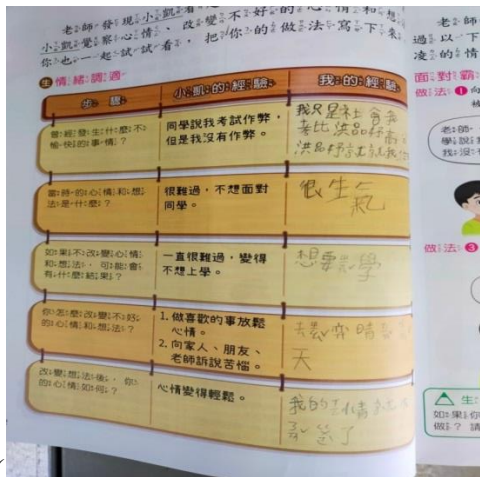 老師發現小凱看
小凱覺察心情、改變不好的心情和想
你也一起試試看，把你的做法寫下來
生 情緒調適
步驟
小凱的經驗
我的經驗
曾經發生什麼不
愉快的事情？
同學說我考試作弊，
但是我沒有作弊。
我只是社會我
考比洪品妤高
洪品妤就
當時的心情和想
法是什麼？
很難過，不想面對
同學。
很生氣
如果不改變心情
和想法，可能會
有什麼結果？
一直很難過，變得
不想上學。
想要 學
你怎麼改變不好
的心情和想法？
1. 做喜歡的事放鬆
心情。
2. 向家人、朋友、
老師訴說苦惱。
去 弈
天
改變想法後，你
的心情如何？
心情變得輕鬆。
我的心情
了
老師
過以下
凌的情
面對霸
做法 1 向
老師，
學說
我沒
做法 3
生
如果你
做？請